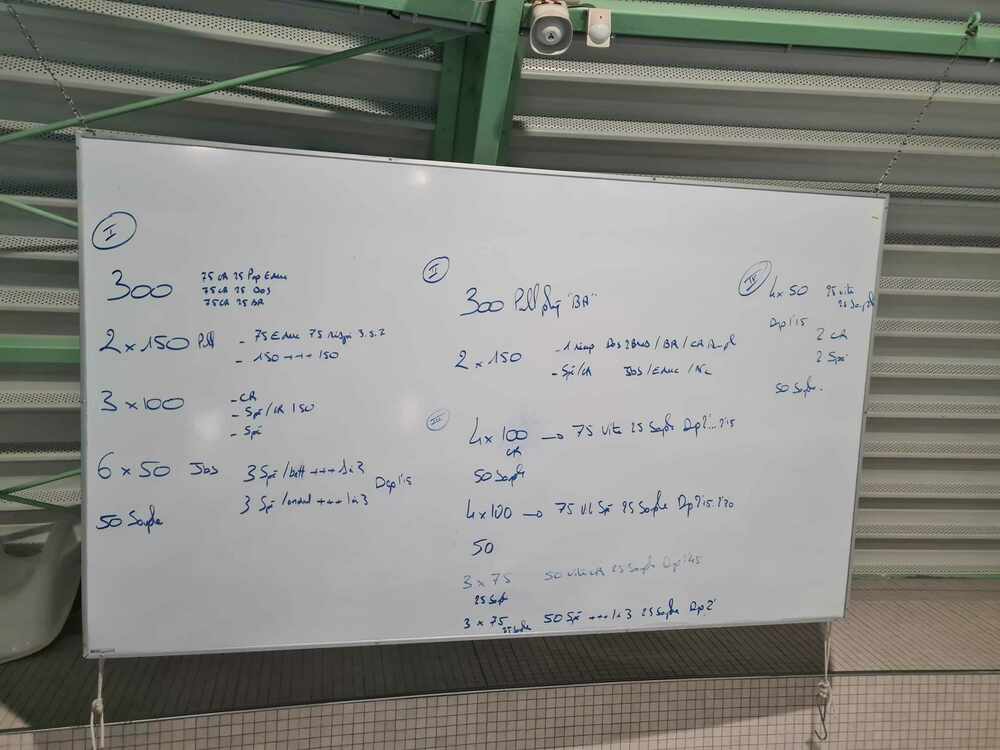 I
300 75 CR 25 Pap Educ
75 CR 25 Dos
75 CR 25 BR
2 x 150 Pull - 75 Educ 75 3.5.7
- 150 +++ 150
3 x 100 - CR
- Spé/CR 150
- Spé
6 x 50 Jbs 3 Spé/batt +++ 1à3
3 Spé/ondul +++ 1à3
Dep 1'15
50 Souple
II
300 Pull "BR"
2 x 150 - 1 Dos 2Bras / BR / CR
- Spé/CR Jbs / Educ / Nc
III
4 x 100 → 75 Vite 25 Souple Dep 2'... 2'15
CR
50 Souple
4 x 100 → 75 Vit Spé 25 Souple Dep 2'15.2'20
50
3 x 75 50 Vite CR 25 Souple Dep 1'45
25 Soupl
3 x 75 50 Spé +++ 1à3 25 Souple Dep 2'
25 Souple
IV
4 x 50 25 vite
25 Souple
Dep 1'15
2 CR
2 Spé
50 Souple.